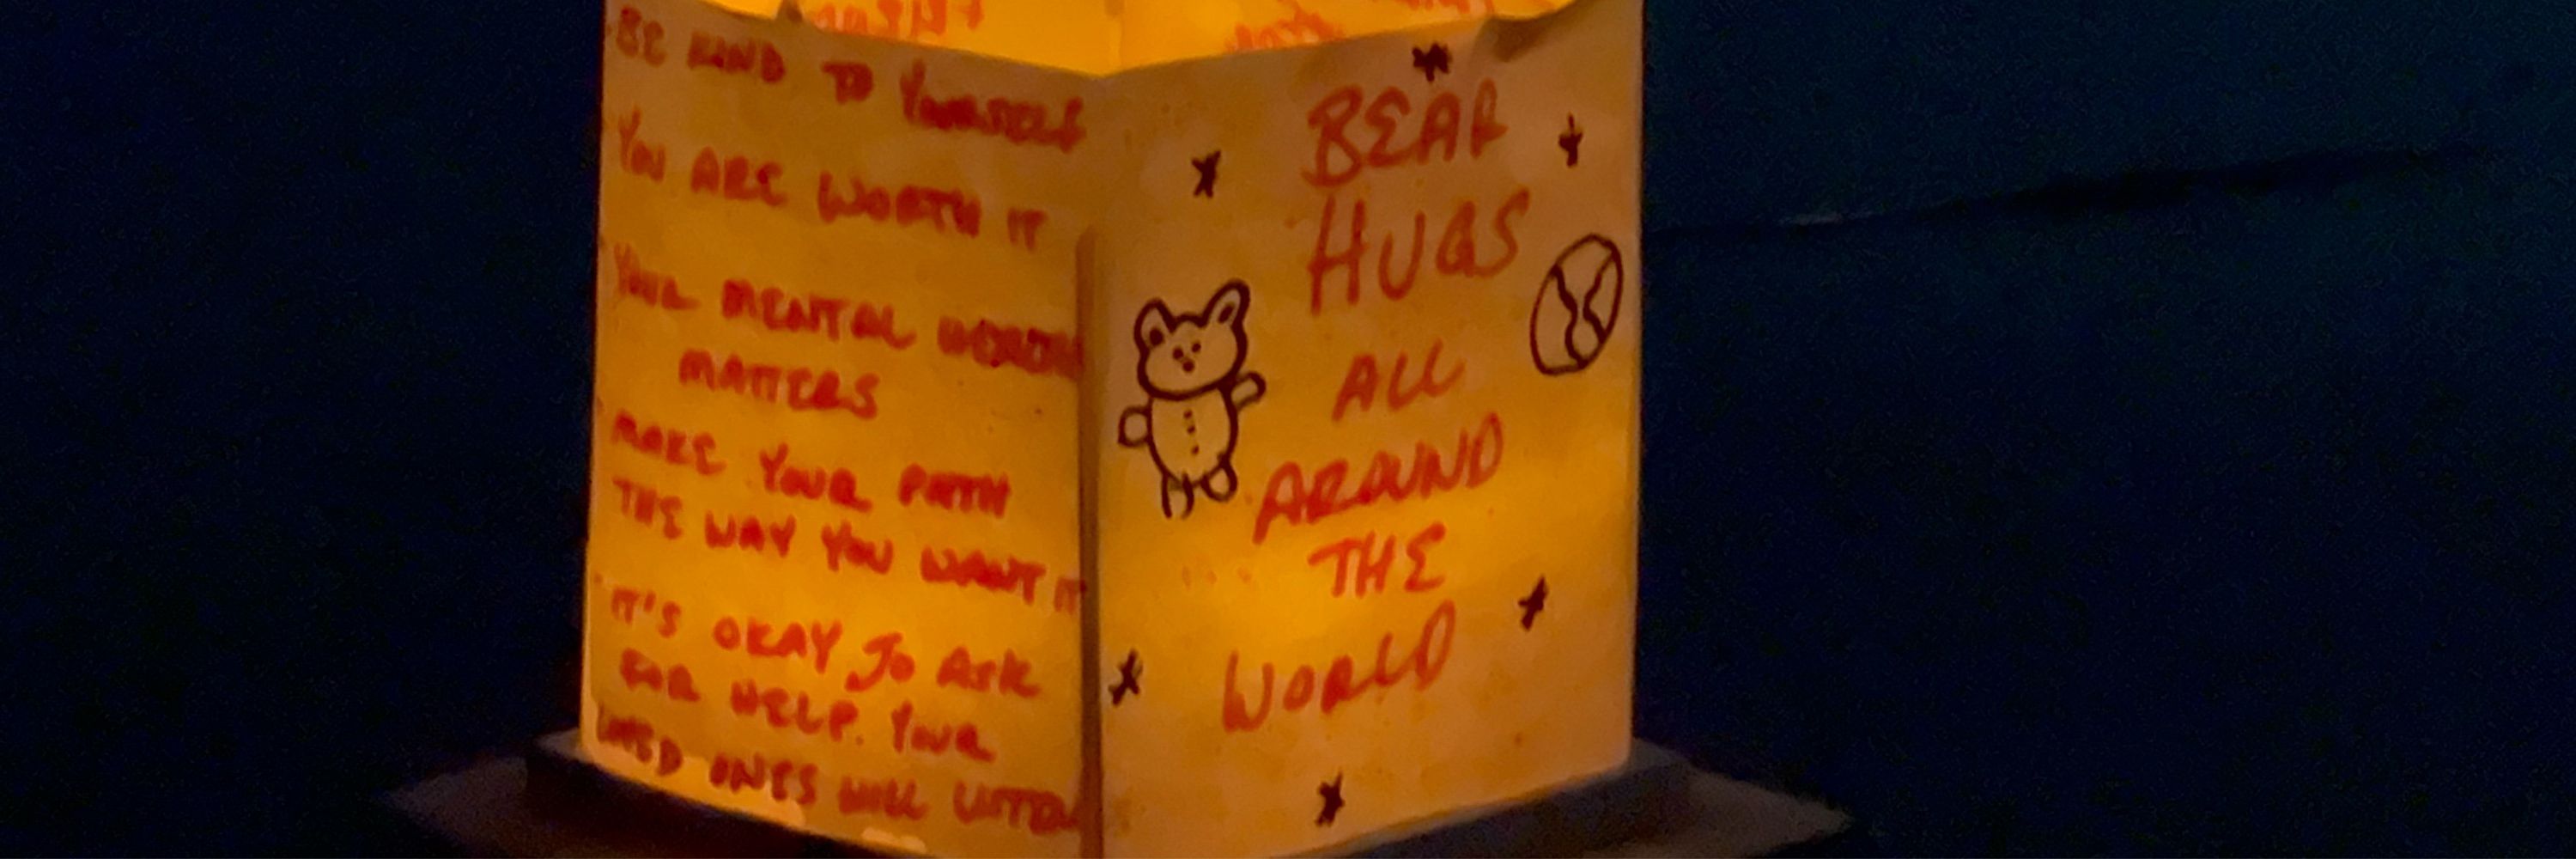 BE KIND TO YOURSELF
YOU ARE WORTH IT
YOUR MENTAL HEALTH
MATTERS
MAKE YOUR PATH
THE WAY YOU WANT IT
IT'S OKAY TO ASK
FOR HELP. YOUR
LOVED ONES WILL LISTEN
BEAR
HUGS
ALL
AROUND
THE
WORLD